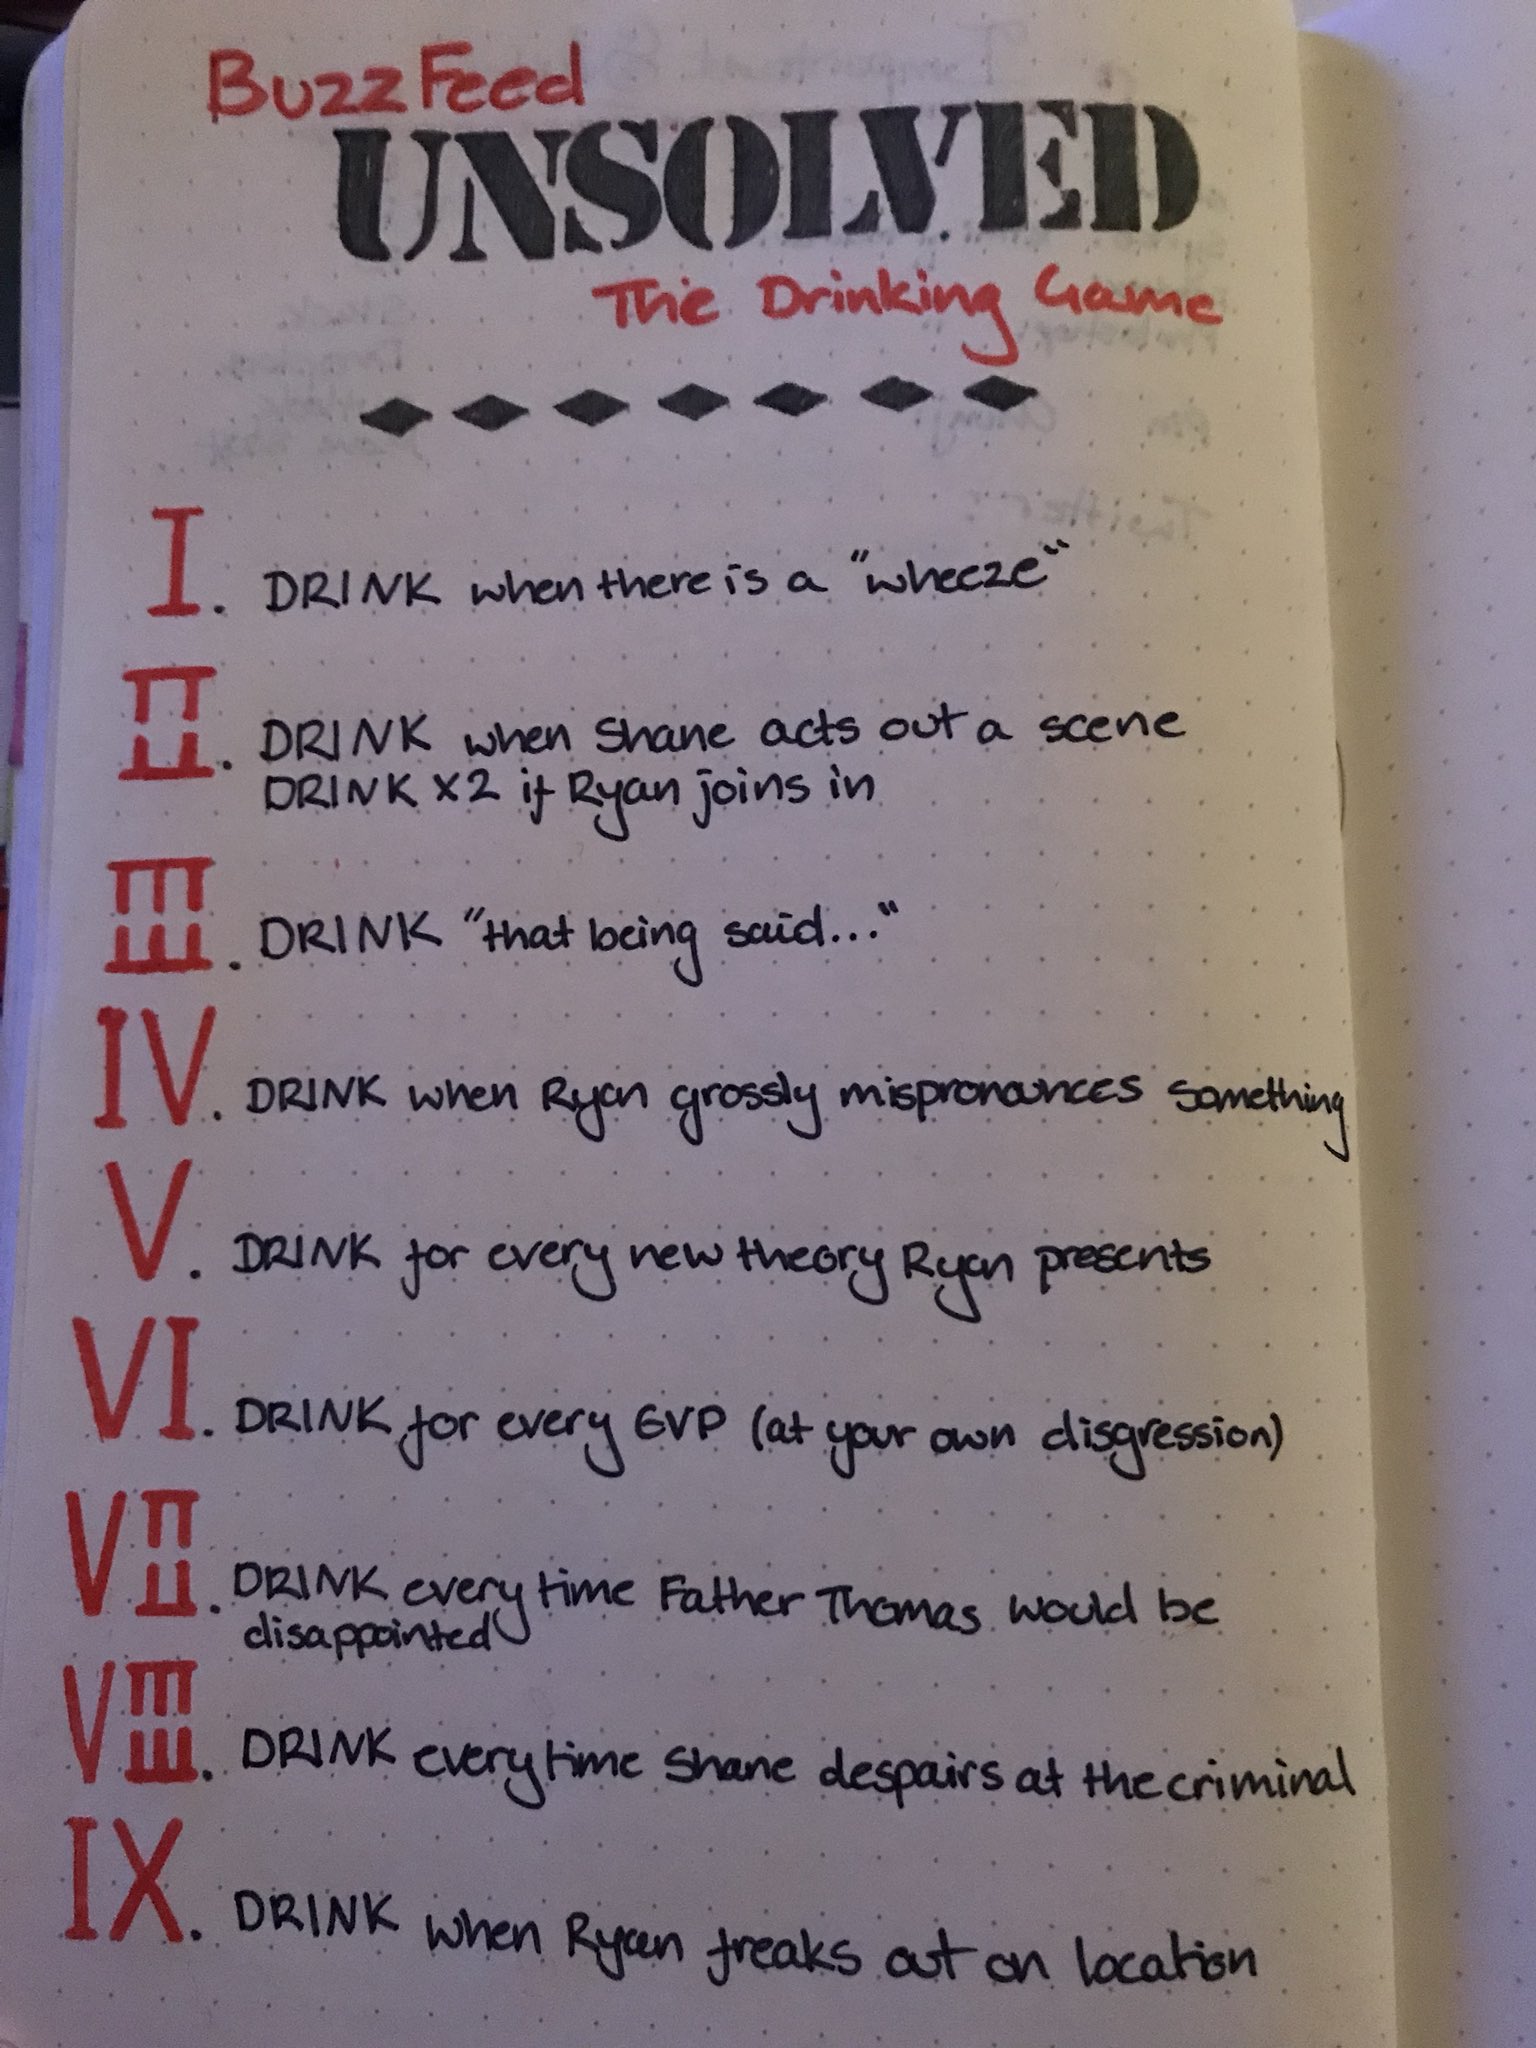 BuzzFeed
UNSOLVED
The Drinking Game
I. DRINK when there is a "wheeze"
II. DRINK when Shane acts out a scene
DRINK X2 if Ryan joins in
III. DRINK "that being said..."
IV. DRINK when Ryan grossly mispronounces something
V. DRINK for every new theory Ryan presents
VI. DRINK for every EVP (at your own disgression)
VII. DRINK every time Father Thomas would be
disappointed
VIII. DRINK every time Shane despairs at the criminal
IX. DRINK when Ryan freaks out on location